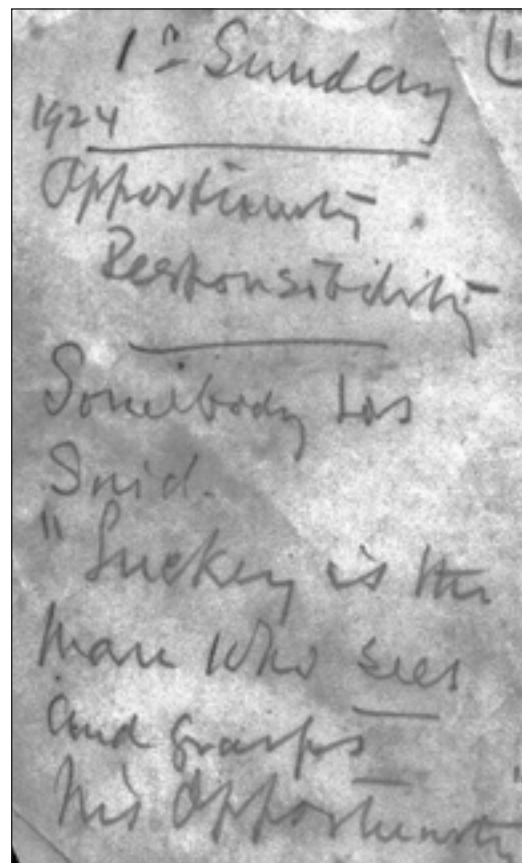 1st Sunday
1
1924
Opportunity
Responsibility
Somebody has
Said.
"Luckey is the
man who sees
and grasps
his Opportunity